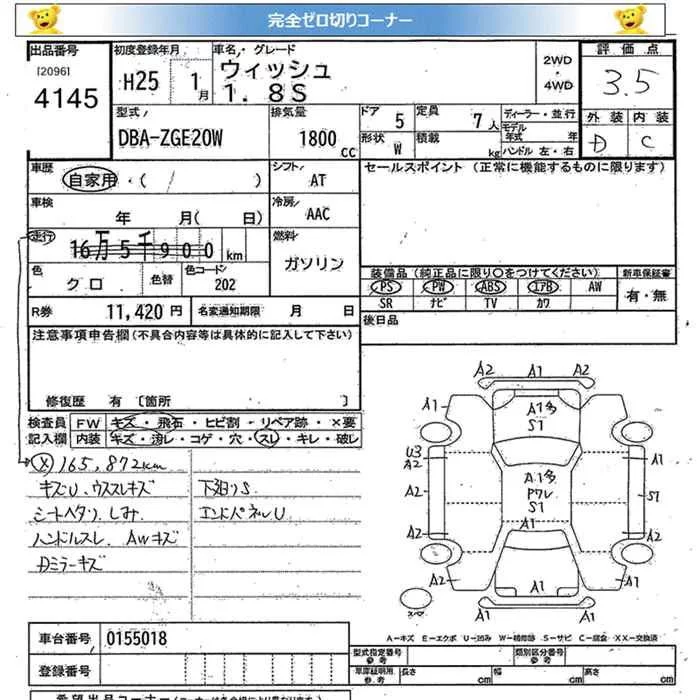 完全ゼロ切りコーナー
出品番号 初度登録年月 車名・グレード 評価点
[2096] 4145 H25 1月 ウィッシュ 1.8S 2WD・4WD 3.5
外装 内装
D C
型式 排気量 ドア 5 定員 7人 ディーラー・並行
DBA-ZGE20W 1800cc 形状 W 積載 kg モデル年式 年
ハンドル 左・右
車歴 シフト セールスポイント (正常に機能するものに限ります)
自家用・( / ) AT
車検 冷房
年 月( 日) AAC
走行 燃料
16万5千900km ガソリン
色 色替 色コード 装備品 (純正品に限り○をつけてください) 新車保証書
クロ 202 PS PW ABS エアB AW 有・無
SR ナビ TV カワ
R券 11,420円 名変通知期限 月 日 後日品
注意事項申告欄(不具合内容等は具体的に記入して下さい)
修復歴 有 〔箇所 〕
検査員記入欄 FW キズ・飛石・ヒビ割・リペア跡・×要
内装 キズ・汚レ・コゲ・穴・スレ・キレ・破レ
(X) 165,872km
キズU、ウススレキズ 下廻りS
シートヘタリ、しみ、 エンドパネルU
ハンドルスレ、AWキズ
Dミラーキズ
A2 A1 A2
A1 A1多 S1 A1
U3 A2 A1
A2 A1多 PワレS1 S1
A2 A1 A1
A2 A1 A2
A2 A1 A1
A-キズ E-エクボ U-凹み W-補修跡 S-サビ C-腐食 XX-交換済
車台番号 0155018
型式指定番号 参考 類別区分番号 参考
登録番号 車庫証明用 参考 長さ cm 幅 cm 高さ cm
希望出品コーナー